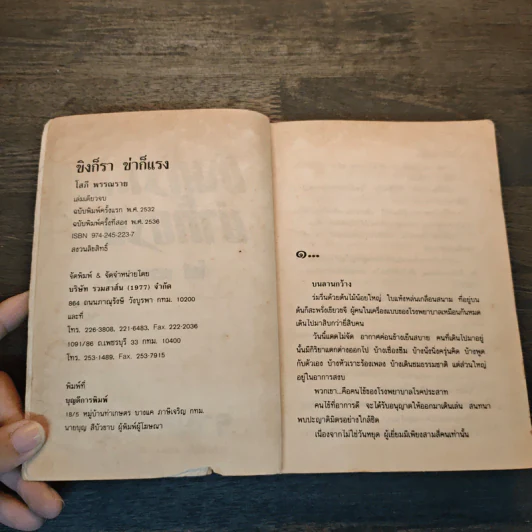 ขิงก็รา ข่าก็แรง
โสภี พรรณราย
เล่มเดียวจบ
ฉบับพิมพ์ครั้งแรก พ.ศ. 2532
ฉบับพิมพ์ครั้งที่สอง พ.ศ. 2536
ISBN 974-245-223-7
สงวนลิขสิทธิ์
จัดพิมพ์ & จัดจำหน่ายโดย
บริษัท รวมสาส์น (1977) จำกัด
864 ถนนภาณุรังษี วังบูรพา กทม. 10200
และที่
โทร. 226-3808, 221-6483, Fax. 222-2036
1091/86 ถ.เพชรบุรี 33 กทม. 10400
โทร. 253-1489, Fax. 253-7915
พิมพ์ที่
บุญดีการพิมพ์
18/5 หมู่บ้านท่าเกษตร บางแค ภาษีเจริญ กทม.
นายบุญ สีบัวขาบ ผู้พิมพ์ผู้โฆษณา
๑...
บนลานกว้าง
ร่มรื่นด้วยต้นไม้น้อยใหญ่ ใบแห้งหล่นเกลื่อนสนาม ที่อยู่บน
ต้นก็สะพรั่งเขียวขจี ผู้คนในเครื่องแบบของโรงพยาบาลเหมือนกันหมด
เดินไปมาสิบกว่ายี่สิบคน
วันนี้แดดไม่จัด อากาศค่อนข้างเย็นสบาย คนที่เดินไปมาอยู่
นั้นมีกิริยาแตกต่างออกไป บ้างเซื่องซึม บ้างนั่งนิ่งครุ่นคิด บ้างพูด
กับตัวเอง บ้างหัวเราะร้องเพลง บ้างเดินชมธรรมชาติ แต่ส่วนใหญ่
อยู่ในอาการสงบ
พวกเขา...คือคนไข้ของโรงพยาบาลโรคประสาท
คนไข้ที่อาการดี จะได้รับอนุญาตให้ออกมาเดินเล่น สนทนา
พบปะญาติมิตรอย่างใกล้ชิด
เนื่องจากไม่ใช่วันหยุด ผู้เยี่ยมมีเพียงสามสี่คนเท่านั้น